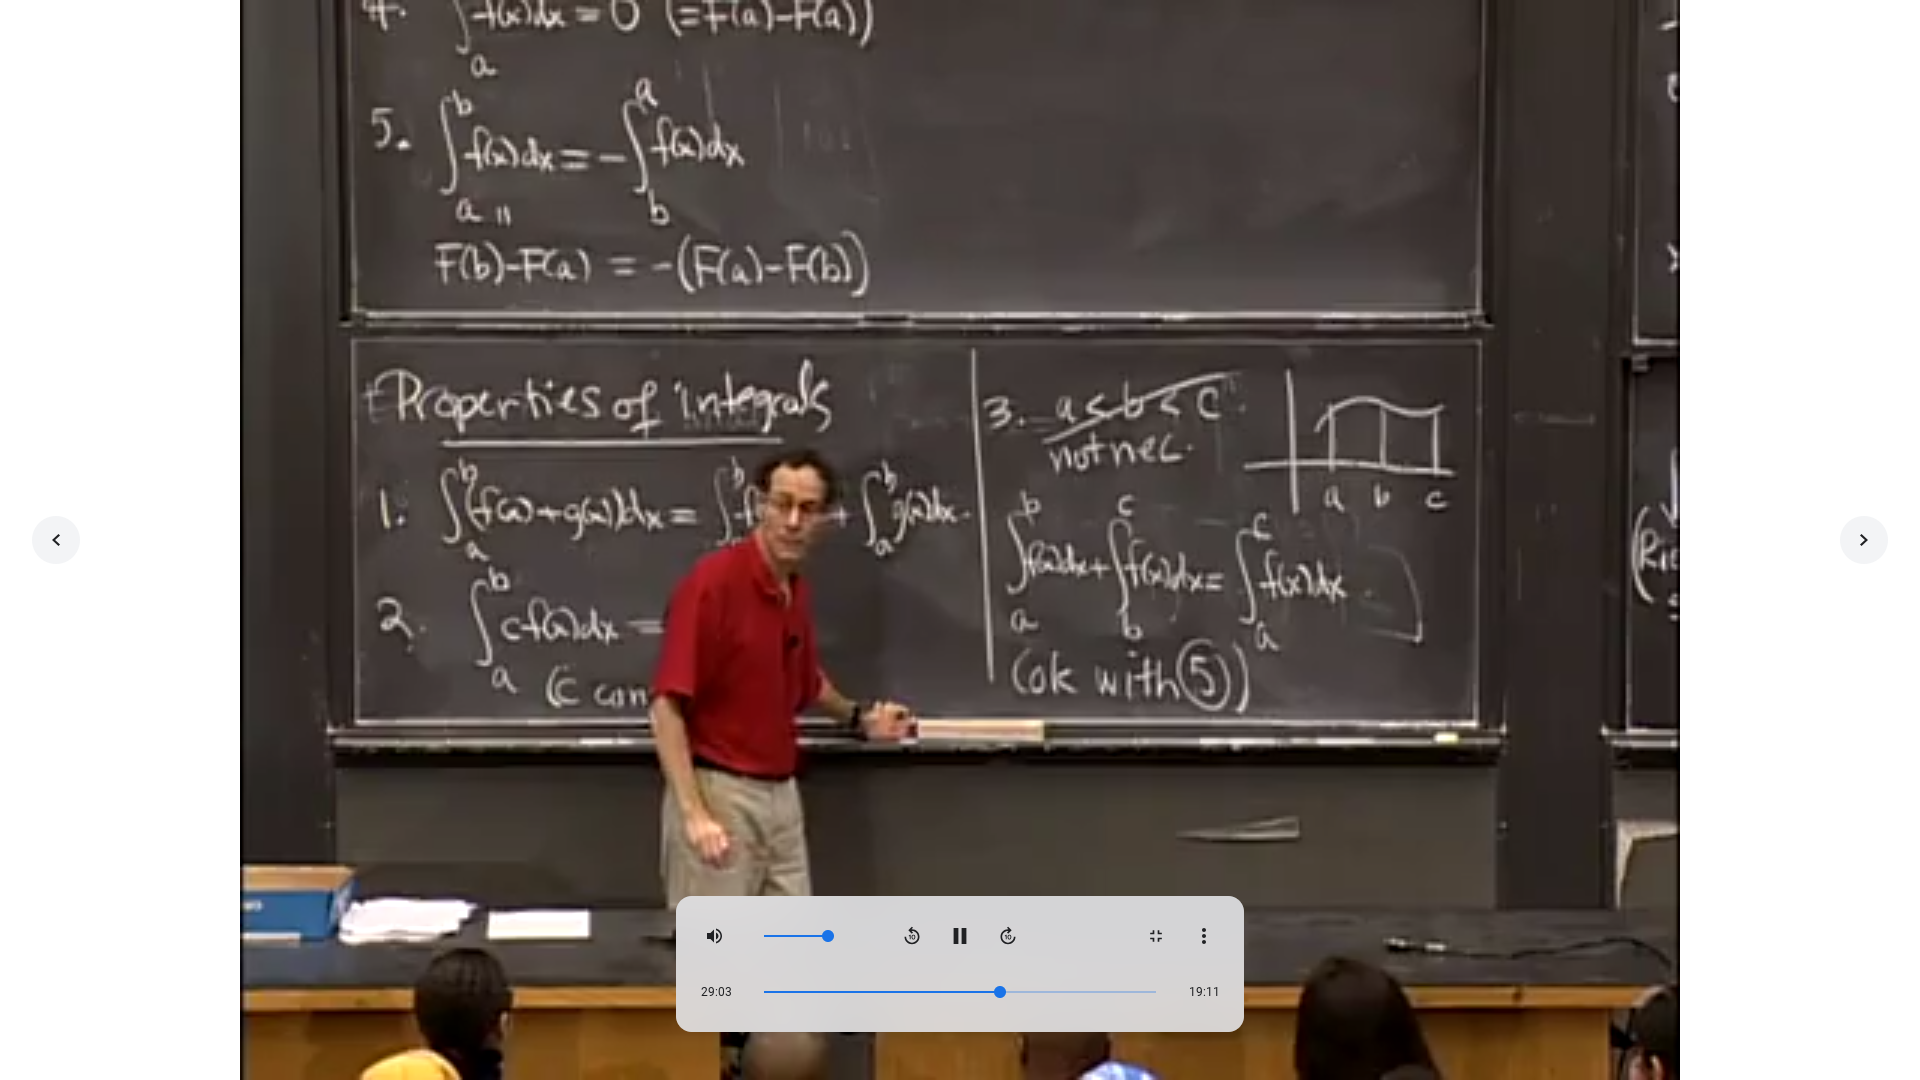 4. ∫ₐ f(x)dx = 0 (=F(a)-F(a))
5. ∫ₐᵇ f(x)dx = -∫_bᵃ f(x)dx
"
F(b)-F(a) = -(F(a)-F(b))
Properties of integrals
1. ∫ₐᵇ (f(x)+g(x))dx = ∫ᵇ f + ∫ₐᵇ g(x)dx.
2. ∫ₐᵇ cf(x)dx =
(c con
3. a < b < c
not nec.
a b c
∫ₐᵇ f(x)dx + ∫_bᶜ f(x)dx = ∫ₐᶜ f(x)dx
(ok with ⑤)
10 10
29:03 19:11